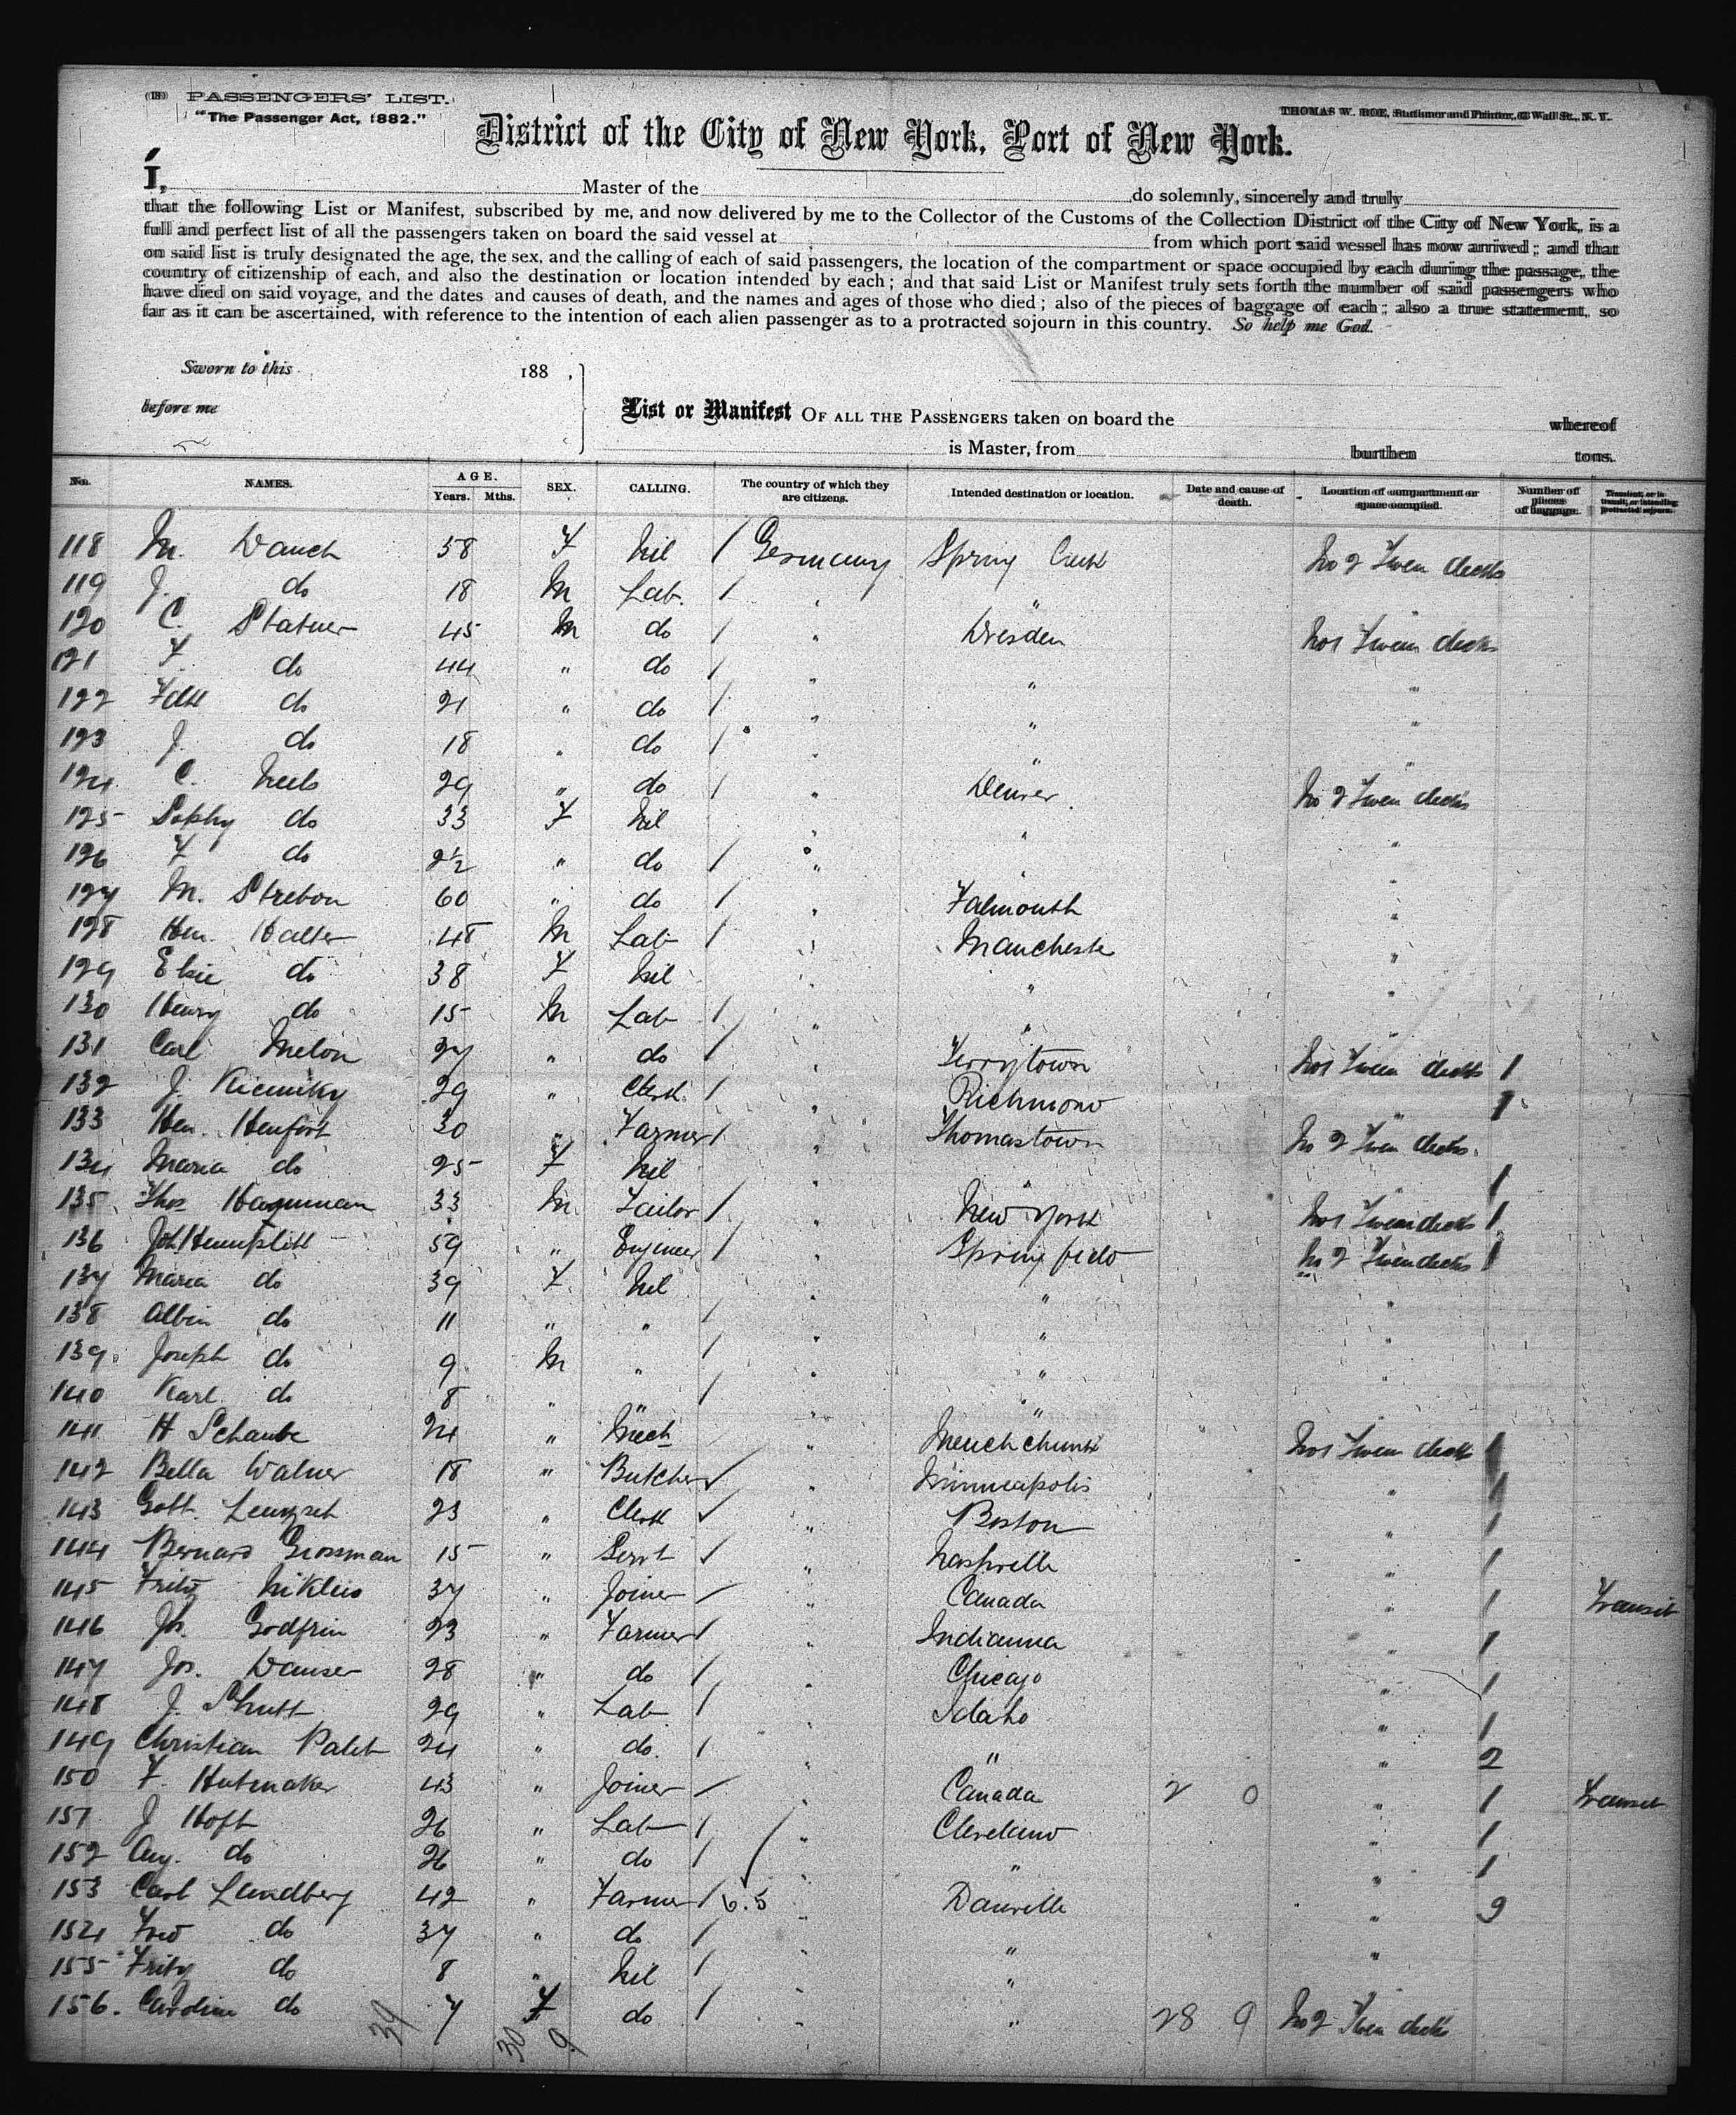 (18) PASSENGERS' LIST.
"The Passenger Act, 1882."
THOMAS W. ROE, Stationer and Printer, 63 Wall St., N. Y.
District of the City of New York, Port of New York.
I, Master of the do solemnly, sincerely and truly
that the following List or Manifest, subscribed by me, and now delivered by me to the Collector of the Customs of the Collection District of the City of New York, is a
full and perfect list of all the passengers taken on board the said vessel at from which port said vessel has now arrived; and that
on said list is truly designated the age, the sex, and the calling of each of said passengers, the location of the compartment or space occupied by each during the passage, the
country of citizenship of each, and also the destination or location intended by each; and that said List or Manifest truly sets forth the number of said passengers who
have died on said voyage, and the dates and causes of death, and the names and ages of those who died; also of the pieces of baggage of each; also a true statement, so
far as it can be ascertained, with reference to the intention of each alien passenger as to a protracted sojourn in this country. So help me God.
Sworn to this 188 ,
before me
List or Manifest OF ALL THE PASSENGERS taken on board the whereof
is Master, from burthen tons.
No. NAMES. AGE. Years. Mths. SEX. CALLING. The country of which they are citizens. Intended destination or location. Date and cause of death. Location of compartment or space occupied. Number of pieces of baggage. Transient, or in transit, or intending protracted sojourn.
118 M. Dauch 58 F Nil / Germany Spring Creek No 2 Tween decks
119 J. do 18 M Lab. / " "
120 C. Statuer 45 M do / " Dresden No 1 Tween decks
121 F. do 44 " do / " " "
122 do 21 " do / " " "
123 J. do 18 " do / " " "
124 C. Neels 29 " do / " Denver No 2 Tween decks
125 Sophy do 33 F Nil " " "
126 F do 2½ " do / " " "
127 M. Strebon 60 " do / " Falmouth "
128 Hen. Halter 48 M Lab / " Mancheste "
129 Elsie do 38 F Nil " " "
130 Henry do 15 M Lab / " " "
131 Carl Melon 27 " do / " Terrytown No 1 Tween decks 1
132 J. 29 " Clerk / " Richmond " 1
133 Hen. Henfort 30 " Farmer / " Thomastown No 2 Tween decks
134 Maria do 25 F Nil " " 1
135 Thos Hagunman 33 M Tailor / " New York No 1 Tween decks 1
136 Joh 59 " Engineer / " Springfield No 2 Tween decks 1
137 Maria do 39 F Nil " " "
138 Albin do 11 " " / " " "
139 Joseph do 9 M " / " " "
140 Karl do 8 " " / " " "
141 H Schaube 24 " Mech " Meuch chunk No 1 Tween decks 1
142 Bella Walner 18 " Butcher ✓ " Minneapolis " 1
143 Gott. 23 " Clerk ✓ " Boston " 1
144 Bernard Grossman 15 " Servt ✓ " Nashville " 1
145 Fritz Niklus 37 " Joiner / " Canada " 1 Transit
146 Js. Godfrin 23 " Farmer / " Indianna " 1
147 Jos. Dauser 28 " do / " Chicago " 1
148 J. Shutt 29 " Lab / " Idaho " 1
149 Christian Palet 24 " do. / " " " 2
150 F. Hutmaker 43 " Joiner / " Canada 2 0 " 1 Transit
151 J Hoft 26 " Lab / " Cleveland " 1
152 Aug. do 26 " do / " " " 1
153 Carl Landberg 42 " Farmer / 6.5 " Danville " 9
154 Fred do 37 " do / " " "
155 Fritz do 8 " Nil / " "
156. Caroline do 7 F do / " " 28 9 No 2 Tween decks
39 30 9